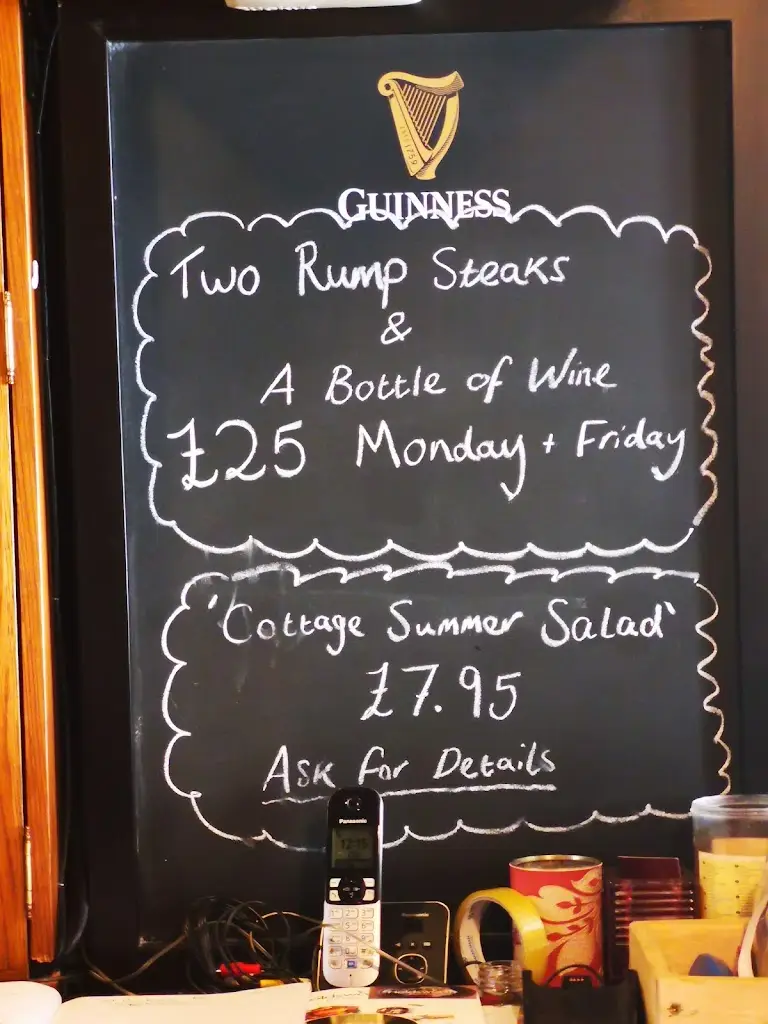 GUINNESS
Two Rump Steaks
&
A Bottle of Wine
£25 Monday + Friday
'Cottage Summer Salad'
£7.95
Ask for Details
Panasonic